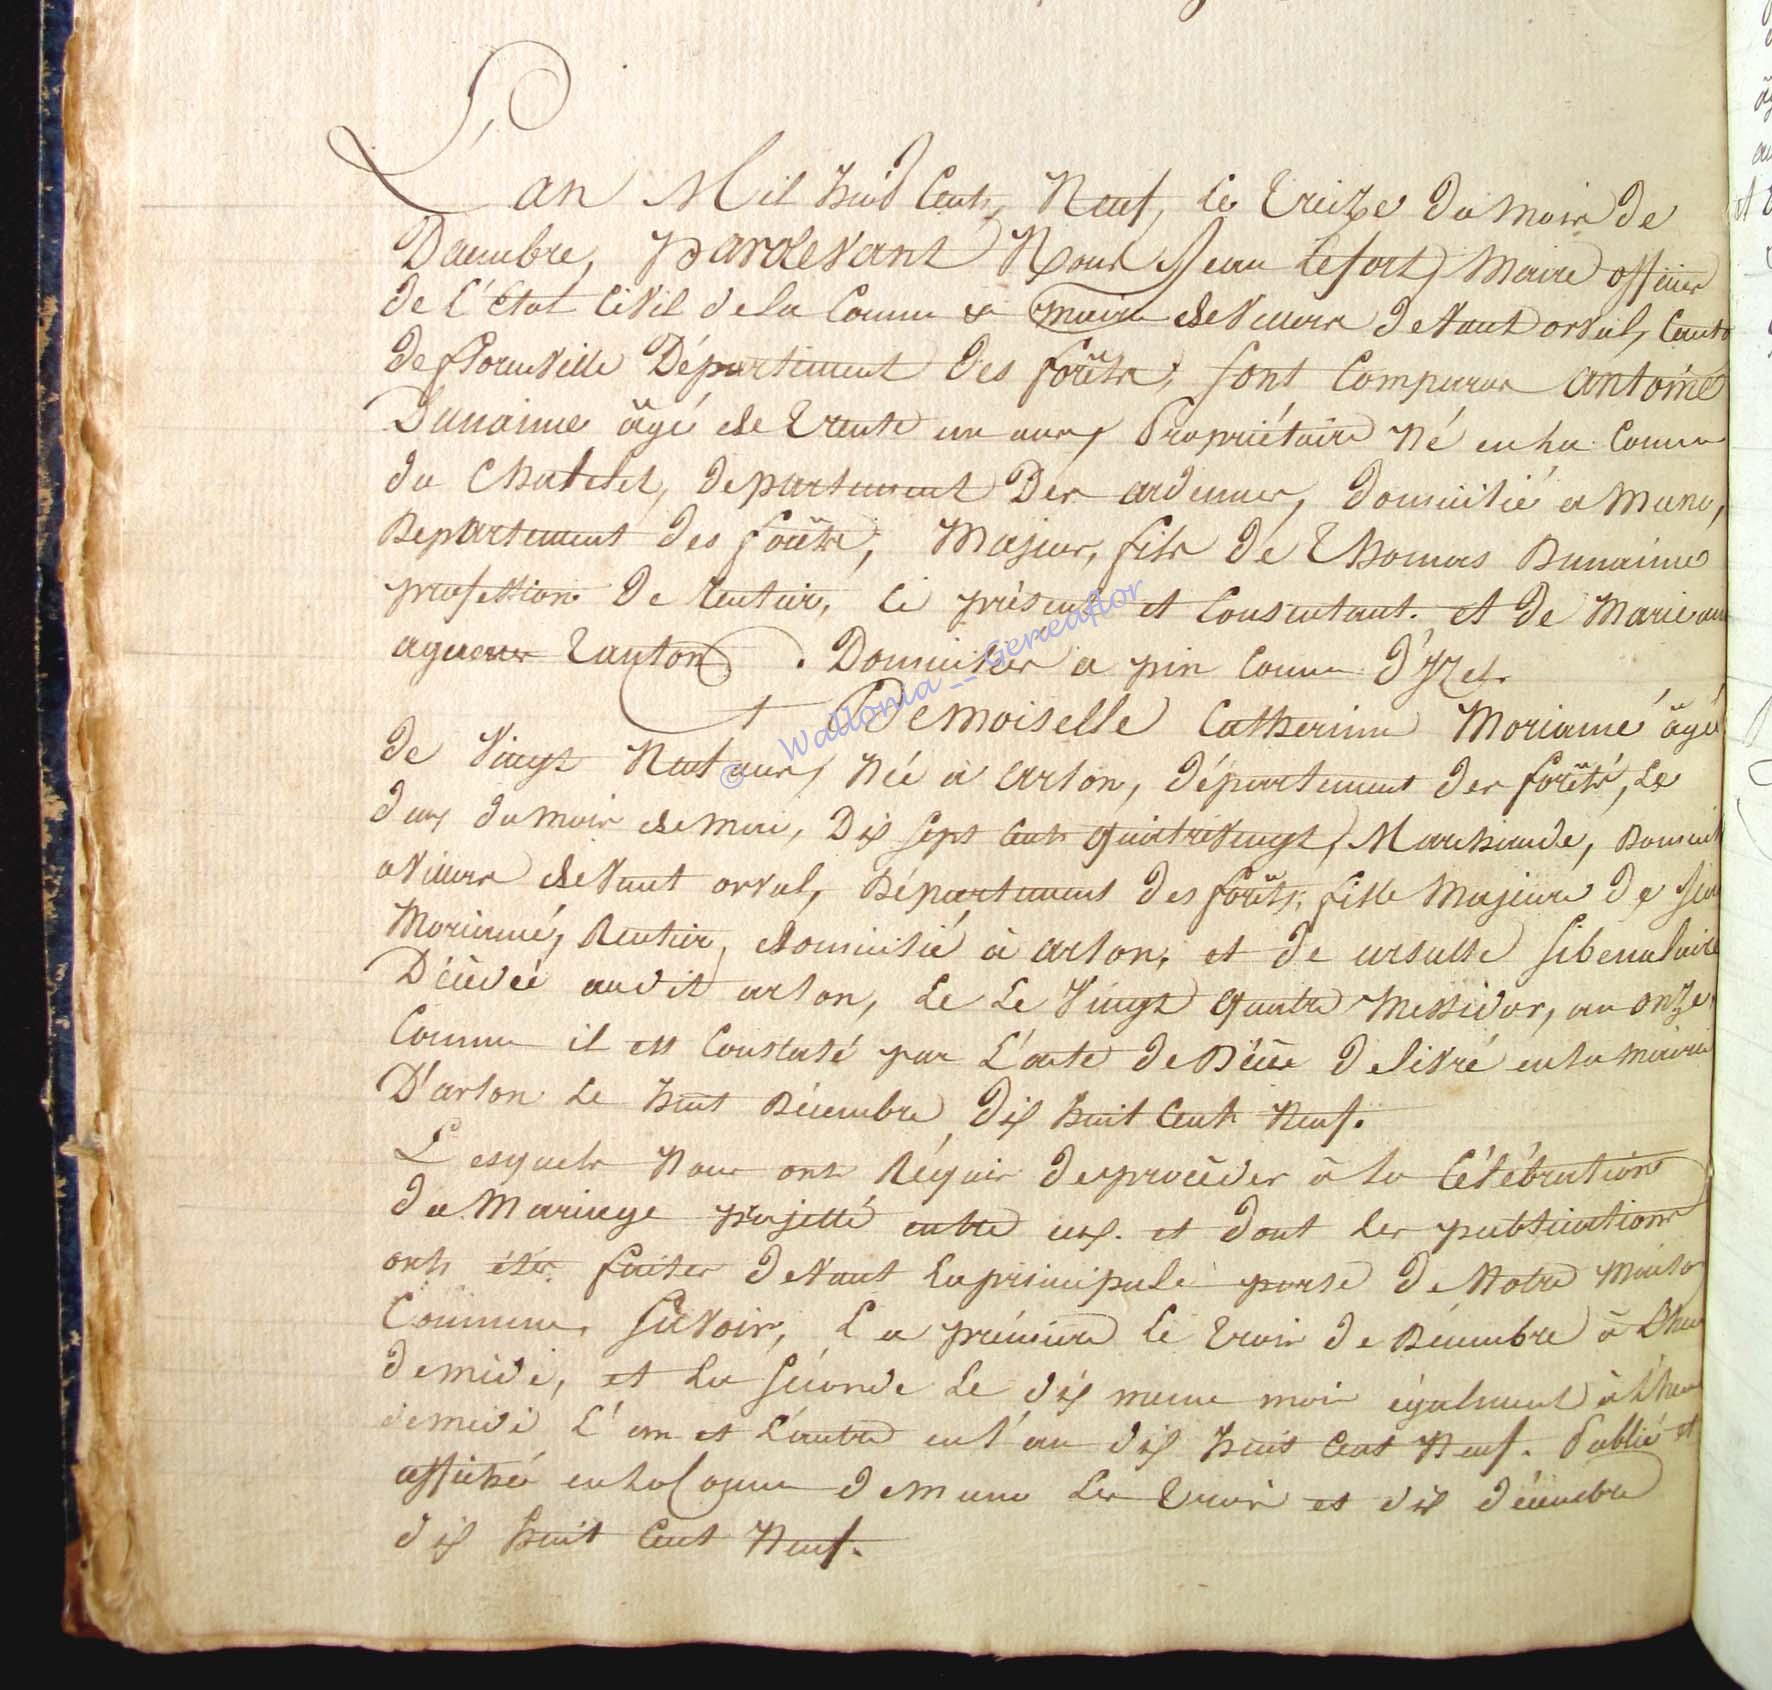 L'an Mil huit Cents Neuf, le treize du mois de
Décembre, pardevant Nous Jean Lefort, Maire officier
de L'état Civil de la Comm & mairie de villers devant orval, Canto
de florenville Département des forêts, sont Comparus antoine
Dunaime âgé de trente un ans, Propriétaire Né en la Comm
du Chatelet, département Des ardennes, domicilié a Muno,
Departement des forêts, Majeur, fils de Thomas Dunaime
profession de rentier, ci présent et Consentant. et de Marie
agnes tanton . Domiciliés a pin Comm d'Izel.
Demoiselle Catherinne Moriamé âgé
de Vingt Neuf ans, Née à arlon, département des forêts, Le
deux du mois de mai, Dix sept Cents quatrevingt, Marchande, Domicil
a Villers devant orval, Département des forêts, fille Majeure de Jean
Moriamé, Rentier, domicilié à arlon, et de ursulle
Décédée audit arlon, Le Le Vingt quatre Messidor, an onze,
Comm il est Constaté par L'acte de Décès délivré en la mairie
D'arlon Le huit Décembre dix huit Cents Neuf.
Lesquels Nous ont Réquis de procéder à la Célébration
du Mariage projetté entre eux. et dont les publications
onts étés faites devant la principale porte de Notre Maison
Commune, Savoir, La prémiere le trois de Décembre à L'heu
de midi, et La séconde Le dix meme mois également à L'heu
de midi L'un et L'autre en l'an dix huit Cent Neuf. Publié et
affiché en la Comm de muno Les trois et dix décembre
dix huit Cent Neuf.
© Wallonia__Geneaflor